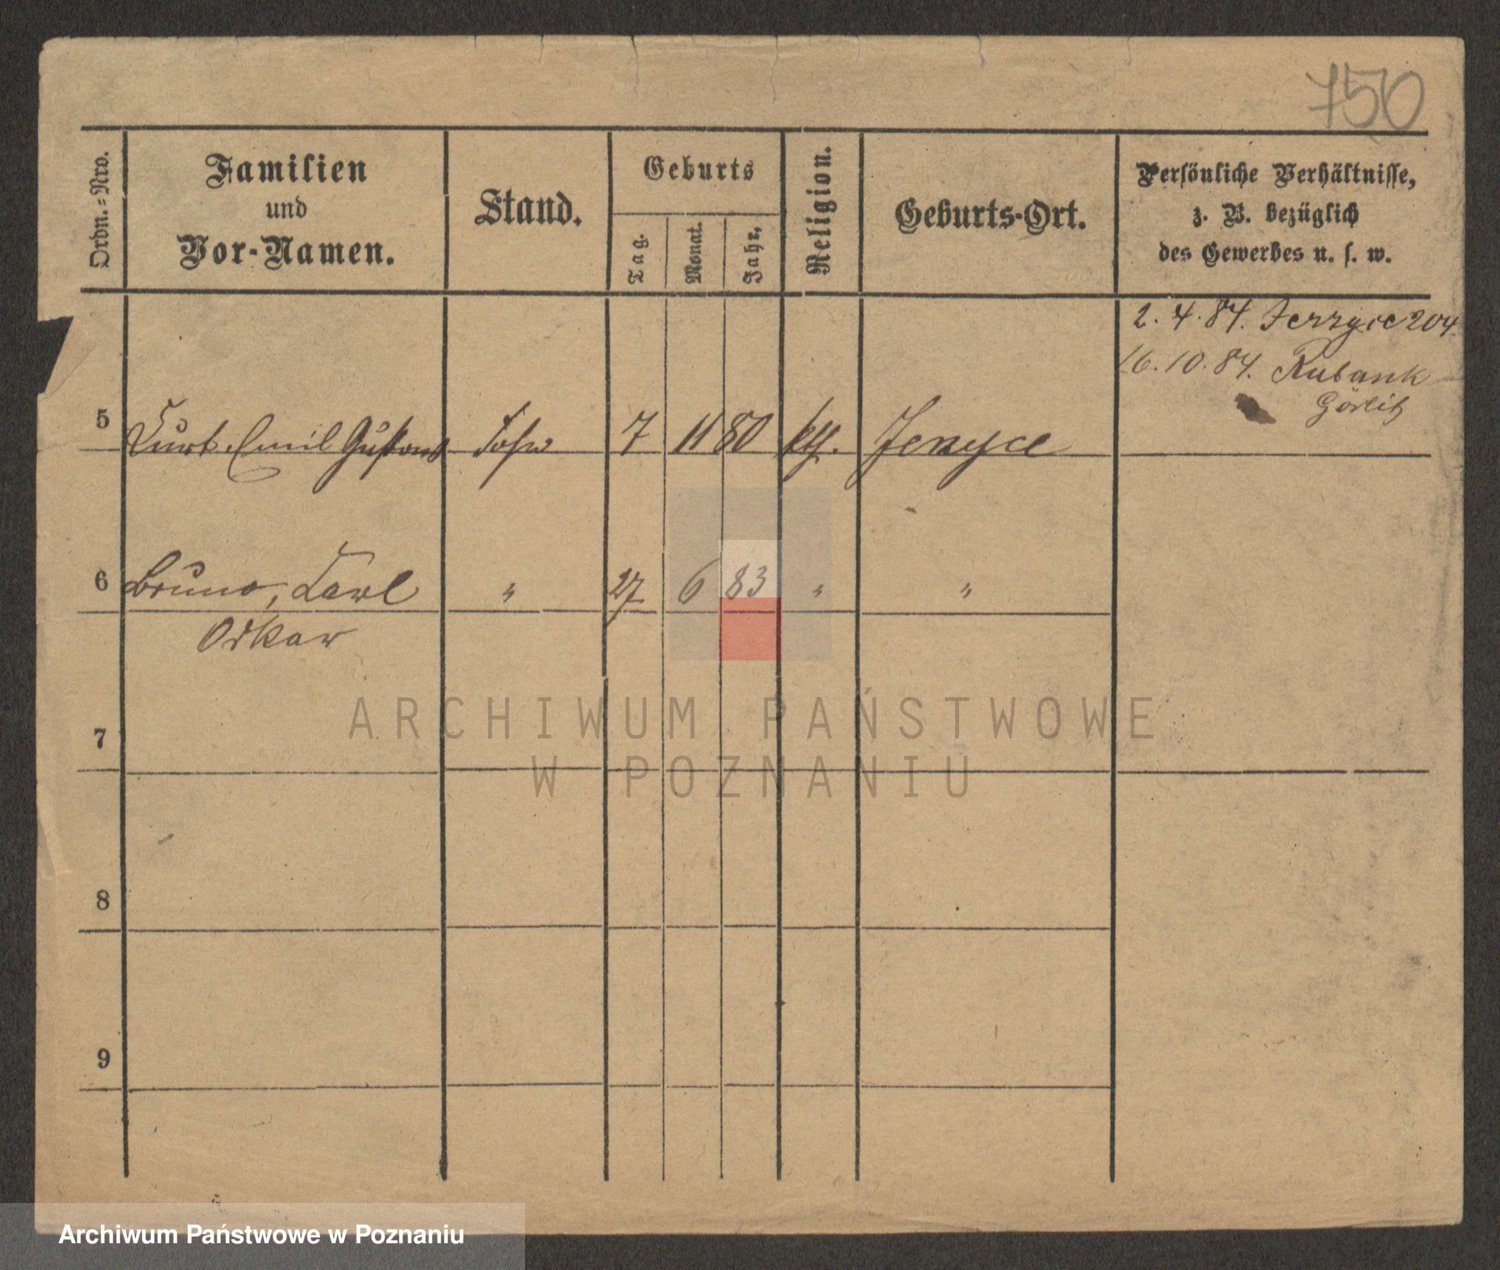 750
Ordn.-Nro.
Familien
und
Vor-Namen.
Stand.
Geburts
Tag.
Monat.
Jahr.
Religion.
Geburts-Ort.
Persönliche Verhältnisse,
z. B. bezüglich
des Gewerbes u. s. w.
2. 4. 84. Jerzyce 204.
16. 10. 84. Rubank
Görlitz
5 Curt Emil Gustav Sohn 7 11 80 Jerzyce
6 Bruno, Carl " 27 6 83 " "
Oskar
ARCHIWUM PAŃSTWOWE
W POZNANIU
7
8
9
Archiwum Państwowe w Poznaniu